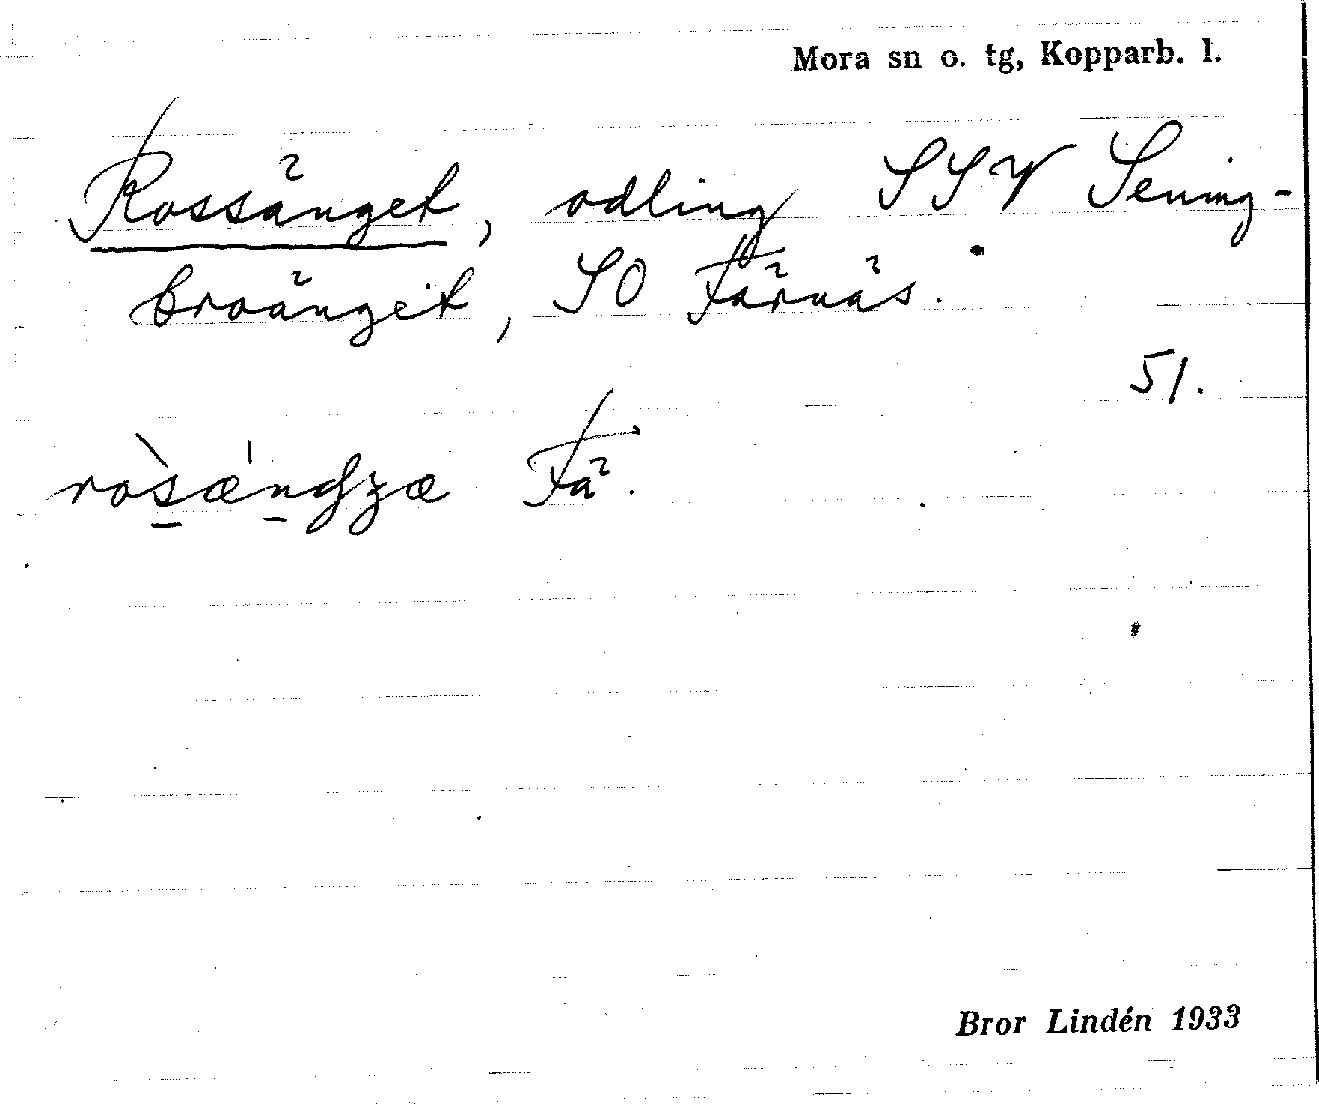 Mora sn o. tg, Kopparb. l.
Rossänget, odling SSV Sening-
broänget, SO Färnäs.
51.
ros̲æn̲dʒæ Fä.
Bror Lindén 1933